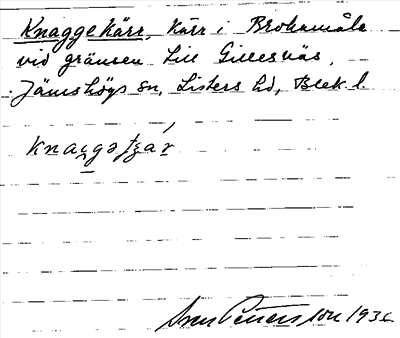 Knaggekärr, Kärr i Brokamåla
vid gränsen till Gillesnäs,
Jämshögs sn, Listers hd, Blek. l.
Sven Petersson 1936